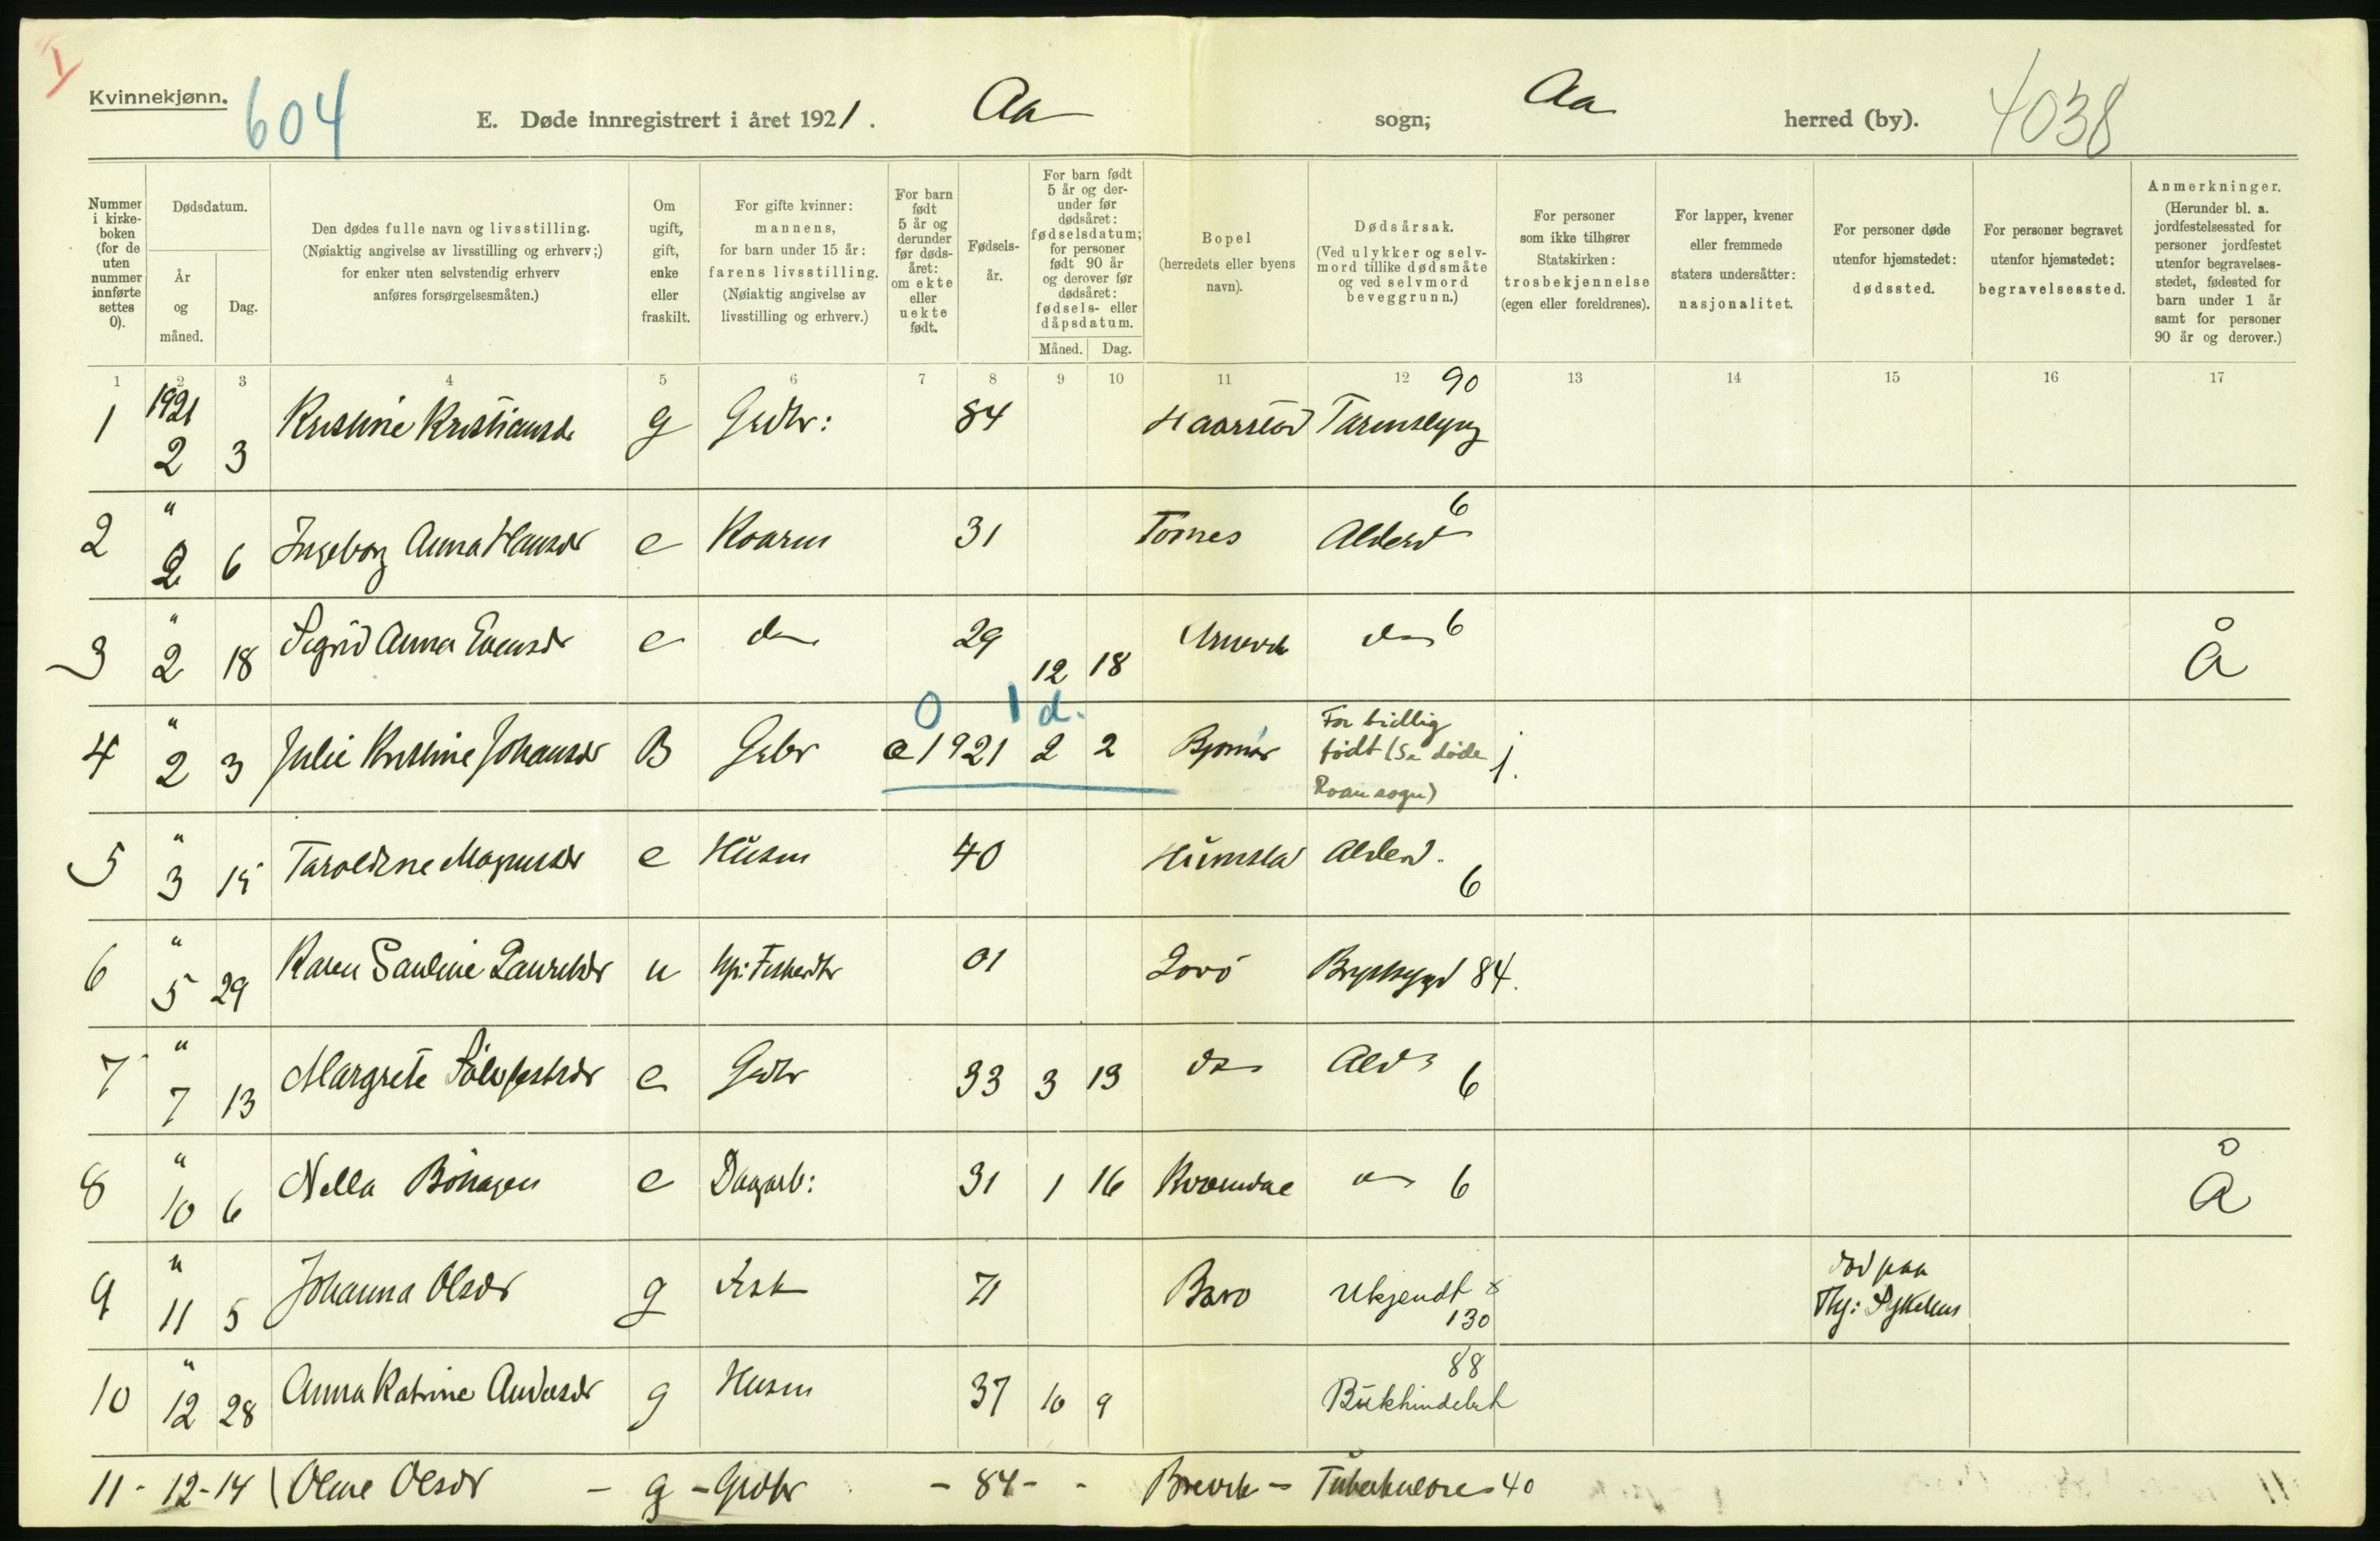 Kvinnekjønn.
604
E. Døde innregistrert i året 1921.
Aa
sogn;
Aa
herred (by).
4038
Nummer i kirke-boken (for de uten nummer innførte settes 0).
Dødsdatum.
År og måned.
Dag.
Den dødes fulle navn og livsstilling.
(Nøiaktig angivelse av livsstilling og erhverv;)
for enker uten selvstendig erhverv
anføres forsørgelsesmåten.)
Om ugift, gift, enke eller fraskilt.
For gifte kvinner:
mannens,
for barn under 15 år:
farens livsstilling.
(Nøiaktig angivelse av
livsstilling og erhverv.)
For barn født 5 år og derunder før døds-året: om ekte eller uekte født.
Fødsels-år.
For barn født 5 år og der-under før dødsåret: fødselsdatum; for personer født 90 år og derover før dødsåret: fødsels- eller dåpsdatum.
Måned.
Dag.
Bopel
(herredets eller byens
navn).
Dødsårsak.
(Ved ulykker og selv-
mord tillike dødsmåte
og ved selvmord
beveggrunn.)
For personer
som ikke tilhører
Statskirken:
trosbekjennelse
(egen eller foreldrenes).
For lapper, kvener
eller fremmede
staters undersåtter:
nasjonalitet.
For personer døde
utenfor hjemstedet:
dødssted.
For personer begravet
utenfor hjemstedet:
begravelsessted.
Anmerkninger.
(Herunder bl. a.
jordfestelsessted for
personer jordfestet
utenfor begravelses-
stedet, fødested for
barn under 1 år
samt for personer
90 år og derover.)
1 2 3 4 5 6 7 8 9 10 11 12 13 14 15 16 17
1 1921 2 3 Kristine Kristiansdr g Grdbr: 84 Haarstad Tarmslyng 90
2 " 2 6 Ingeborg Anna Hansdr e Kaarm 31 Tørnes Alderd 6
3 " 2 18 Sigrid Anna Evensdr e do 29 12 18 Arnevik do 6 Å
0 1 d.
4 " 2 3 Julie Kristine Johansdr B Grbr e 1921 2 2 Bjørnør For tidlig
født (Se døde 1.
Roan sogn)
5 " 3 15 e Husm 40 Humstad Alderd. 6
6 " 5 29 Karen Pauline Lauritsdr u 01 Lovø Brystsygd 84.
7 " 7 13 Margrete e Grdbr 33 3 13 do Ald 6
8 " 10 6 Nella Bonhagen e Dagarb: 31 1 16 Kvorndal " 6 Å
9 " 11 5 Johanna Olsdr g Fisk 71 Barø Ukjendt x
130
død paa
Thj: Sykehus
10 " 12 28 Anna Katrine Andersdr g Husm 37 10 9 88
Bukhindebet
11 - 12 - 14 Oline Olsdr - g - Grdbr - 84 - - Brevik - Tuberkulose 40